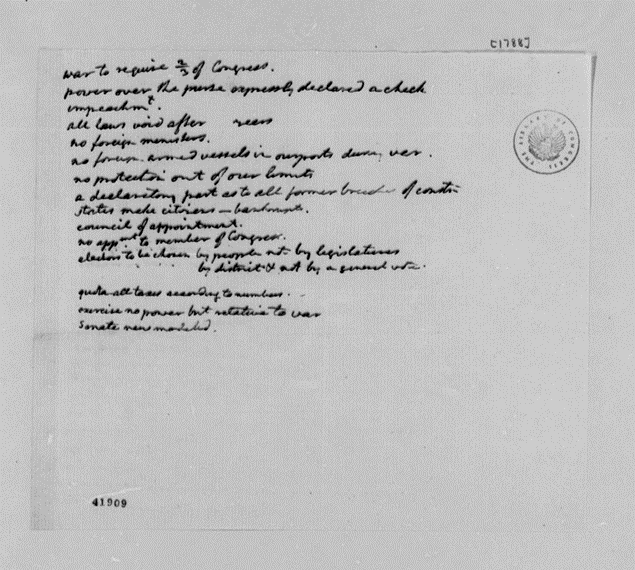 [1788]
war to require 2/3 of Congress.
power over the purse expressly declared a check
impeachmt.
all laws void after years
no foreign ministers.
no foreign armed vessels in our ports during war.
no protection out of our limits
a declaratory part as to all former breaches of constn
states make citizens — bankrupts.
council of appointment.
no appmt to member of Congress.
electors to be chosen by people not by legislatures
by district & not by a general vote.
quota all taxes according to numbers.
exercise no power but relative to war
Senate new modeled.
THE LIBRARY OF CONGRESS
41909